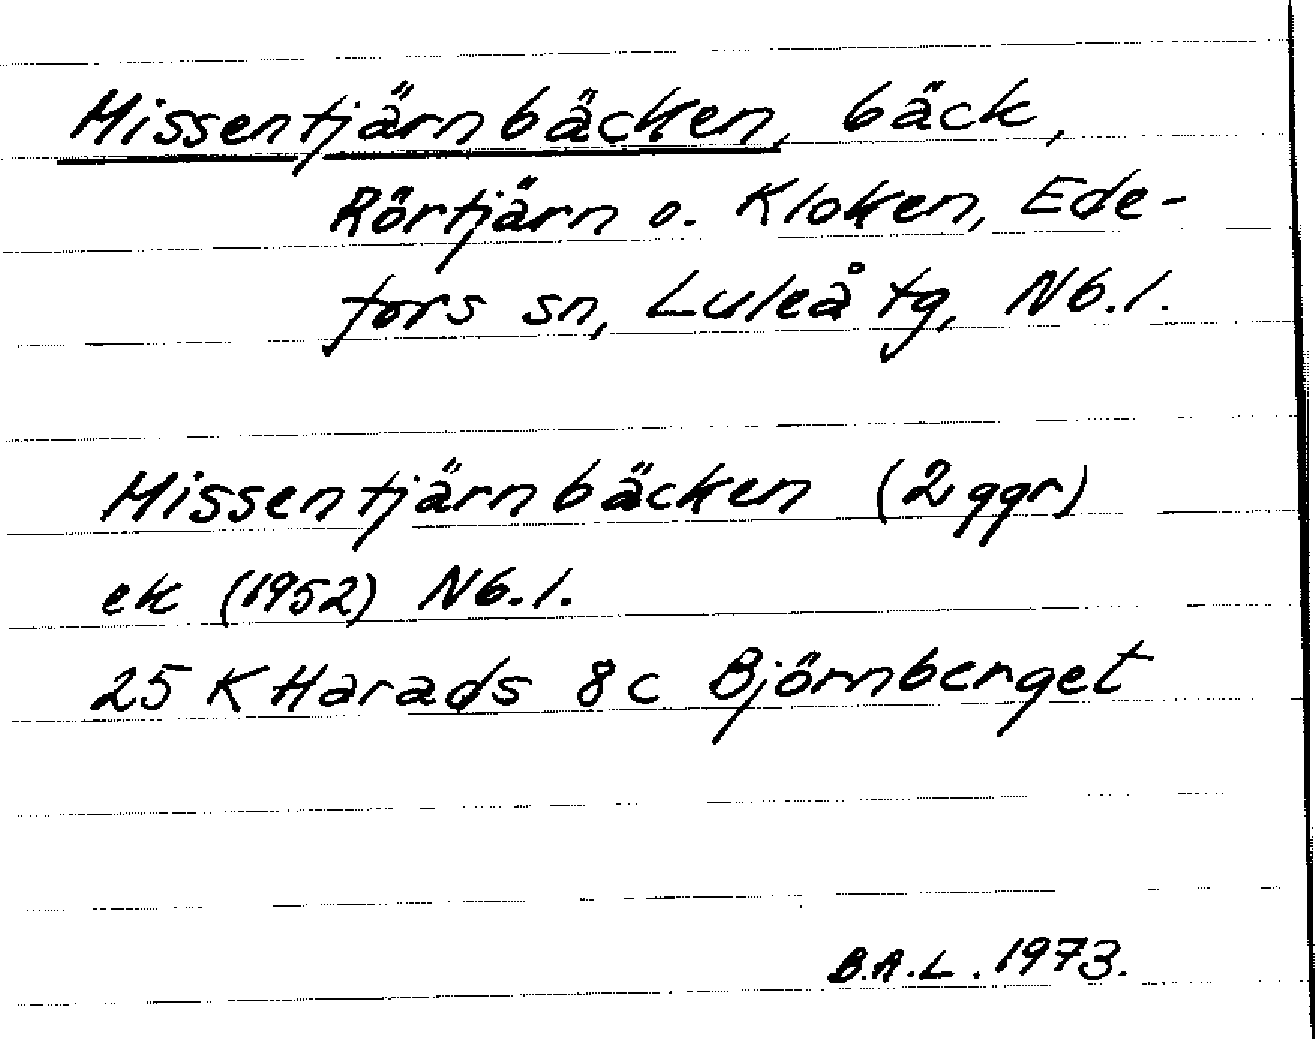 Missentjärnbäcken, bäck,
Rörtjärn o. Kloken, Ede-
fors sn, Luleå tg, Nb.l.
Missentjärnbäcken (2 ggr)
ek (1952) Nb.l.
25 K Harads 8c Björnberget
B.A.L. 1973.